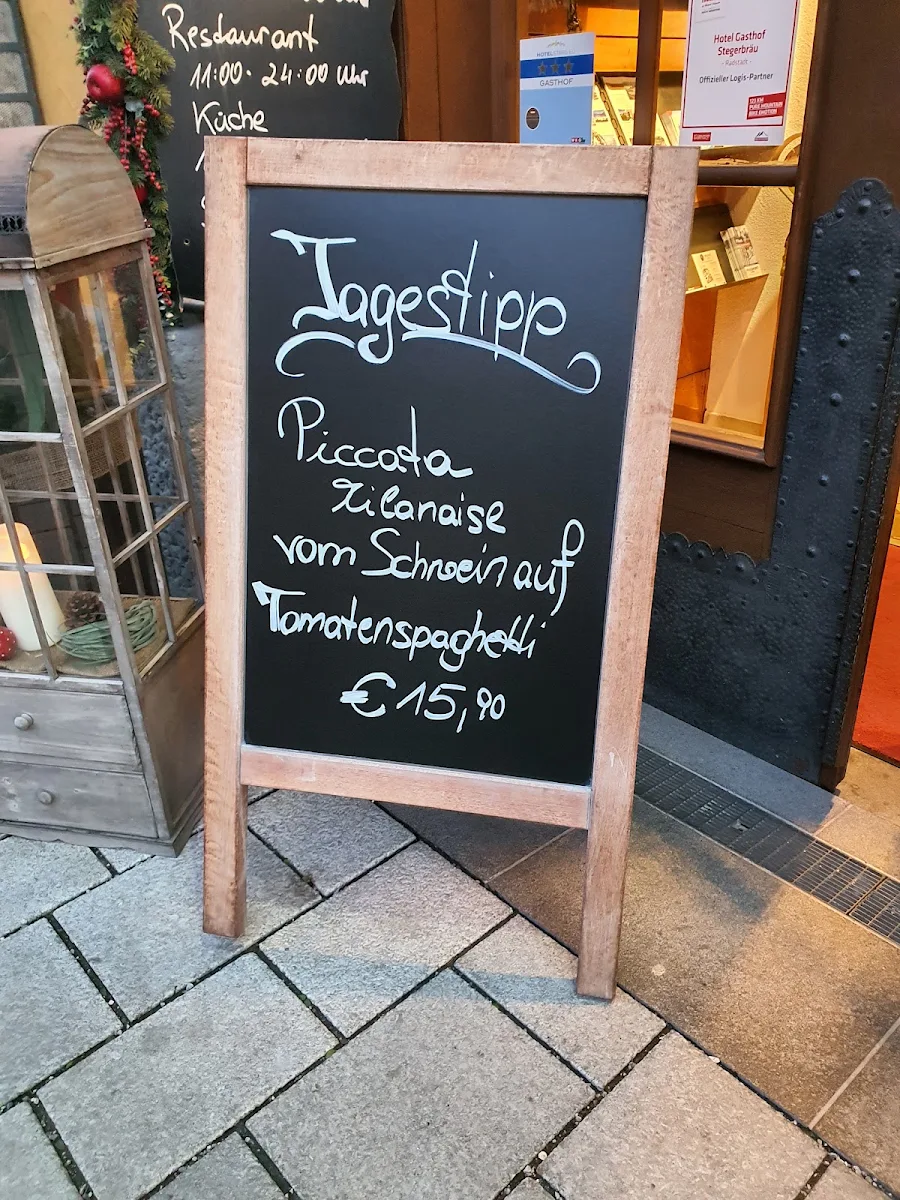 Restaurant
11:00 - 24:00 Uhr
Küche
HOTEL
GASTHOF
Hotel Gasthof
Stegerbräu
- Radstadt -
Offizieller Logis-Partner
Tagestipp
Piccata
Milanaise
vom Schwein auf
Tomatenspaghetti
€ 15,90